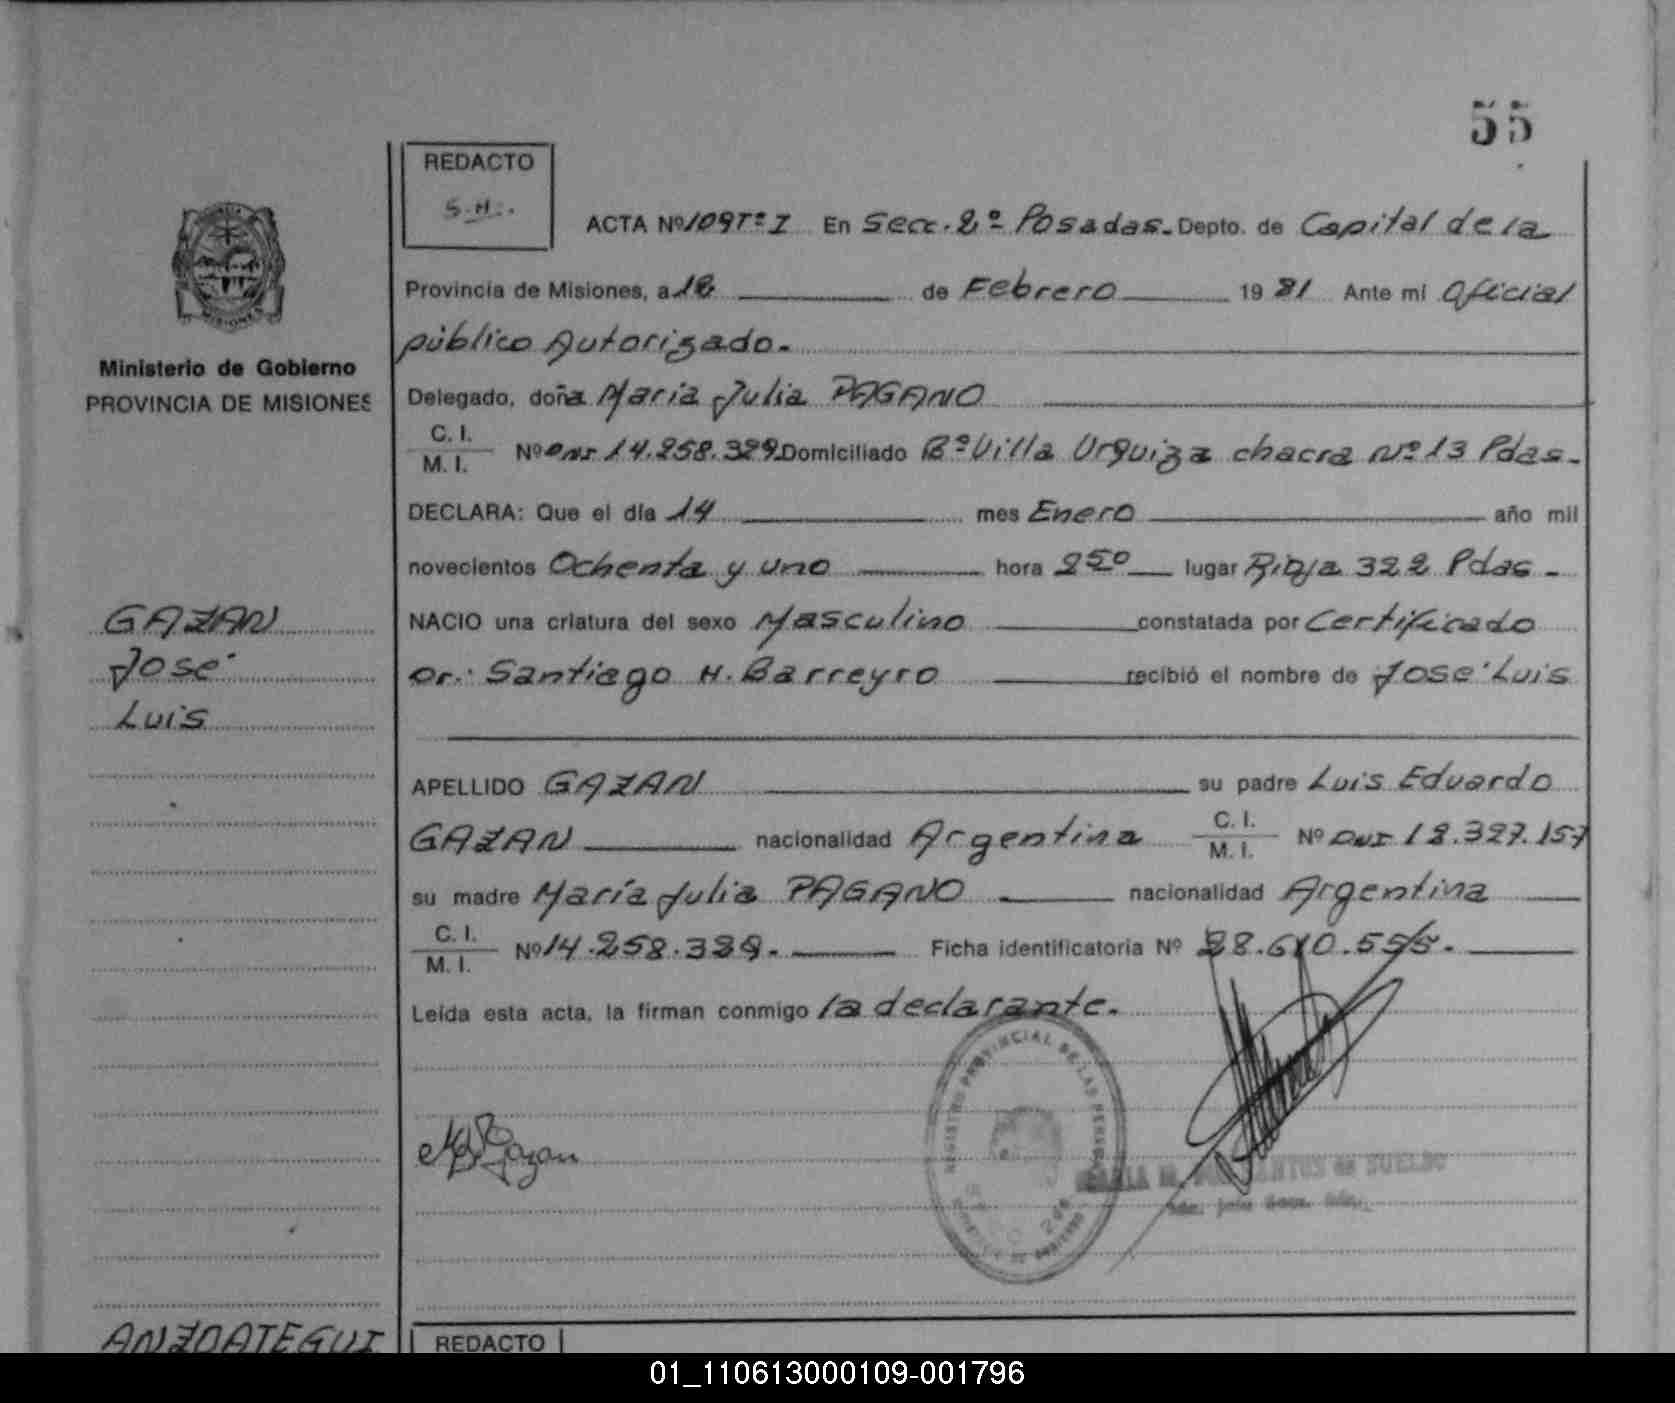 55
REDACTO
S.H.
ACTA Nº 109 Tº I En Secc. 2º Posadas. Depto. de Capital de la
Provincia de Misiones, a 18 de Febrero 1981 Ante mi Oficial
público Autorizado.
Ministerio de Gobierno
PROVINCIA DE MISIONES
Delegado, doña María Julia PAGANO
C. I.
M. I. Nº DNI 14.258.329 Domiciliado Bº Villa Urquiza chacra Nº 13 Pdas.
DECLARA: Que el día 14 mes Enero año mil
novecientos Ochenta y uno hora 250 lugar Rioja 322 Pdas.
GAZAN
José
Luis
NACIO una criatura del sexo Masculino constatada por Certificado
Dr.: Santiago H. Barreyro recibió el nombre de José Luis
APELLIDO GAZAN su padre Luis Eduardo
GAZAN nacionalidad Argentina C. I.
M. I. Nº DNI 12.327.157
su madre María Julia PAGANO nacionalidad Argentina
C. I.
M. I. Nº 14.258.329. Ficha identificatoria Nº 28.610.555.
Leída esta acta, la firman conmigo la declarante.
REGISTRO PROVINCIAL DE LAS PERSONAS
DE SUELDO
ANZOATEGUI
REDACTO
01_110613000109-001796